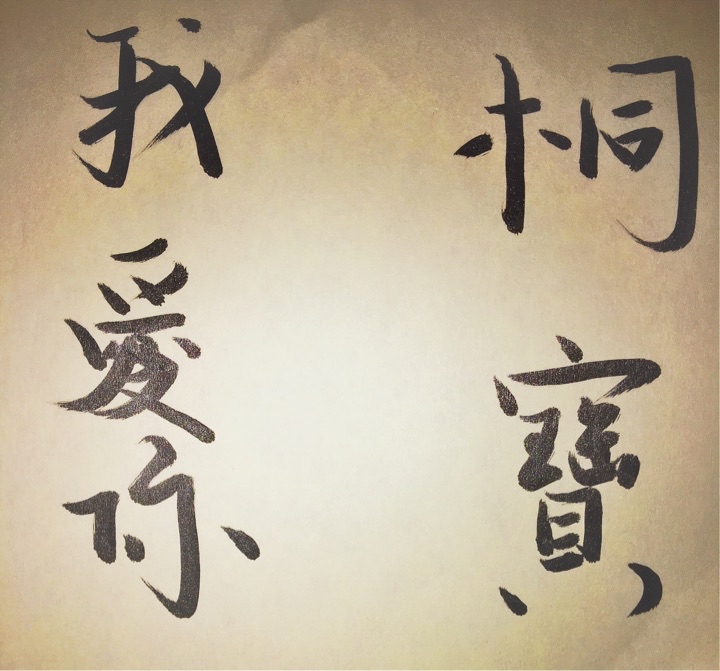 桐寶
我愛你